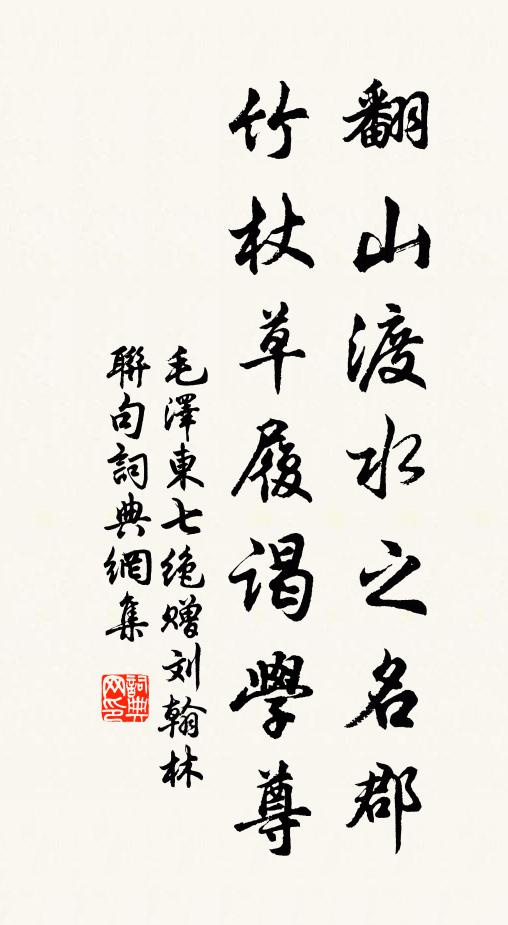 翻山渡水之名郡
竹杖草履谒學尊
毛澤東七绝赠刘翰林
聯句詞典網集
詞典网印